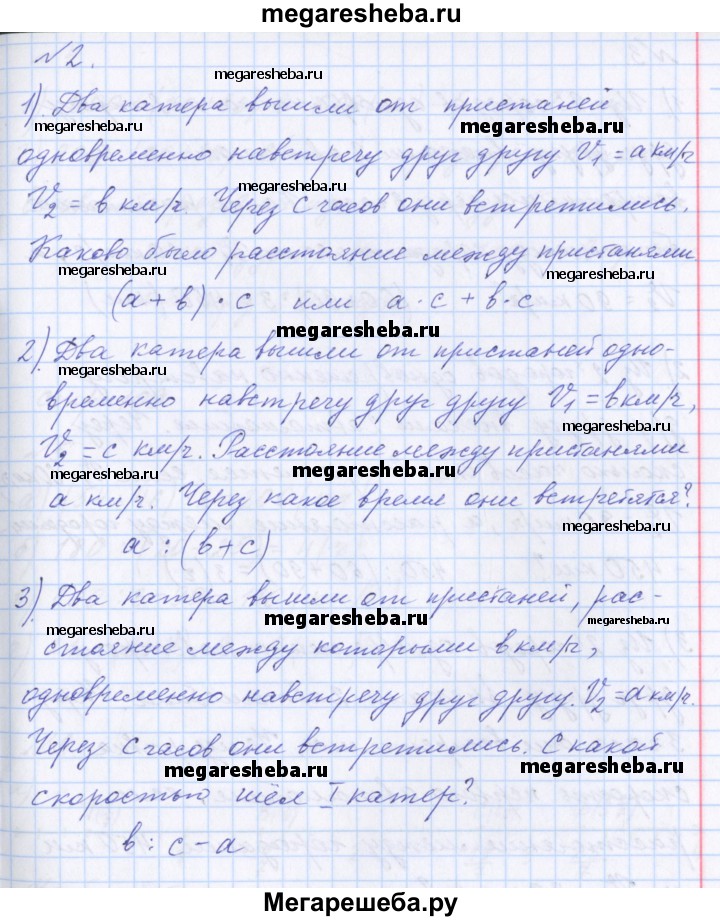 megaresheba.ru
№2.
megaresheba.ru
1). Два катера вышли от пристаней
megaresheba.ru megaresheba.ru
одновременно навстречу друг другу V₁ = a км/ч
megaresheba.ru megaresheba.ru
V₂ = в км/ч. Через с часов они встретились.
Каково было расстояние между пристанями
megaresheba.ru megaresheba.ru
(а + в) · с или а · с + в · с
megaresheba.ru
2). Два катера вышли от пристаней одно-
megaresheba.ru
временно навстречу друг другу V₁ = в км/ч,
megaresheba.ru
V₂ = с км/ч. Расстояние между пристанями
megaresheba.ru megaresheba.ru
а км/ч. Через какое время они встретятся?
megaresheba.ru
а : (в + с)
3). Два катера вышли от пристаней, рас-
megaresheba.ru megaresheba.ru
стояние между которыми в км/ч,
megaresheba.ru
одновременно навстречу друг другу. V₂ = а км/ч.
megaresheba.ru
Через с часов они встретились. С какой
megaresheba.ru megaresheba.ru
скоростью шёл I катер?
в : с - а
Мегарешеба.ру